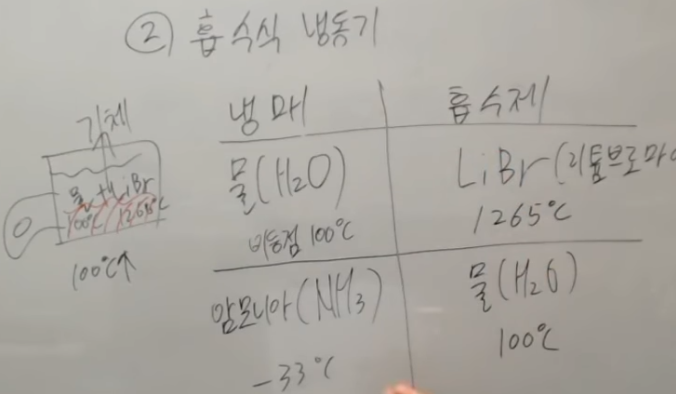 ② 흡수식 냉동기
냉매
흡수제
물(H₂O)
비등점 100℃
LiBr(리튬브로마
1265℃
암모니아(NH₃)
-33℃
물(H₂O)
100℃
기체
물+LiBr
100℃ 1265℃
100℃↑